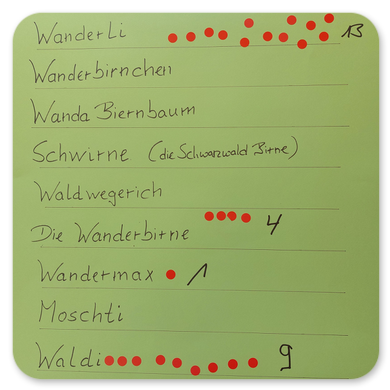 WanderLi 13
Wanderbirnchen
Wanda Biernbaum
Schwirne (die Schwarzwald Birne)
Waldwegerich
Die Wanderbirne 4
Wandermax 1
Moschti
Waldi 9